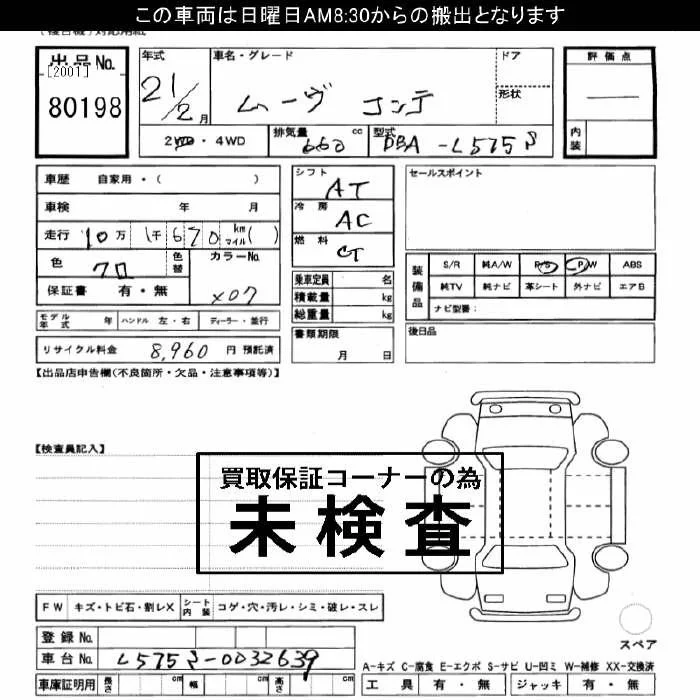 この車両は日曜日AM8:30からの搬出となります
出品No.
[2001]
80198
年式
21/2月
車名・グレード
ムーヴ コンテ
ドア
形状
評価点
内装
2WD・4WD
排気量 660 cc
型式 DBA-L575S
車歴 自家用・( )
車検 年 月
走行 10万 1千 670 km マイル( )
色 クロ
色替
カラーNo. X07
保証書 有・無
モデル年式 年 ハンドル 左・右 ディーラー・並行
リサイクル料金 8,960 円 預託済
シフト AT
冷房 AC
燃料 G
乗車定員 名
積載量 kg
総重量 kg
書類期限
月 日
セールスポイント
装備品
S/R 純A/W P/S P/W ABS
純TV 純ナビ 革シート 外ナビ エアB
ナビ型番:
後日品
【出品店申告欄(不良箇所・欠品・注意事項等)】
【検査員記入】
買取保証コーナーの為
未検査
FW キズ・トビ石・割レX シート内装 コゲ・穴・汚レ・シミ・破レ・スレ
登録No.
車台No. L575S-0032639
スペア
A-キズ C-腐食 E-エクボ S-サビ U-凹ミ W-補修 XX-交換済
車庫証明用 長さ cm 幅 cm 高さ cm
工具 有・無 ジャッキ 有・無